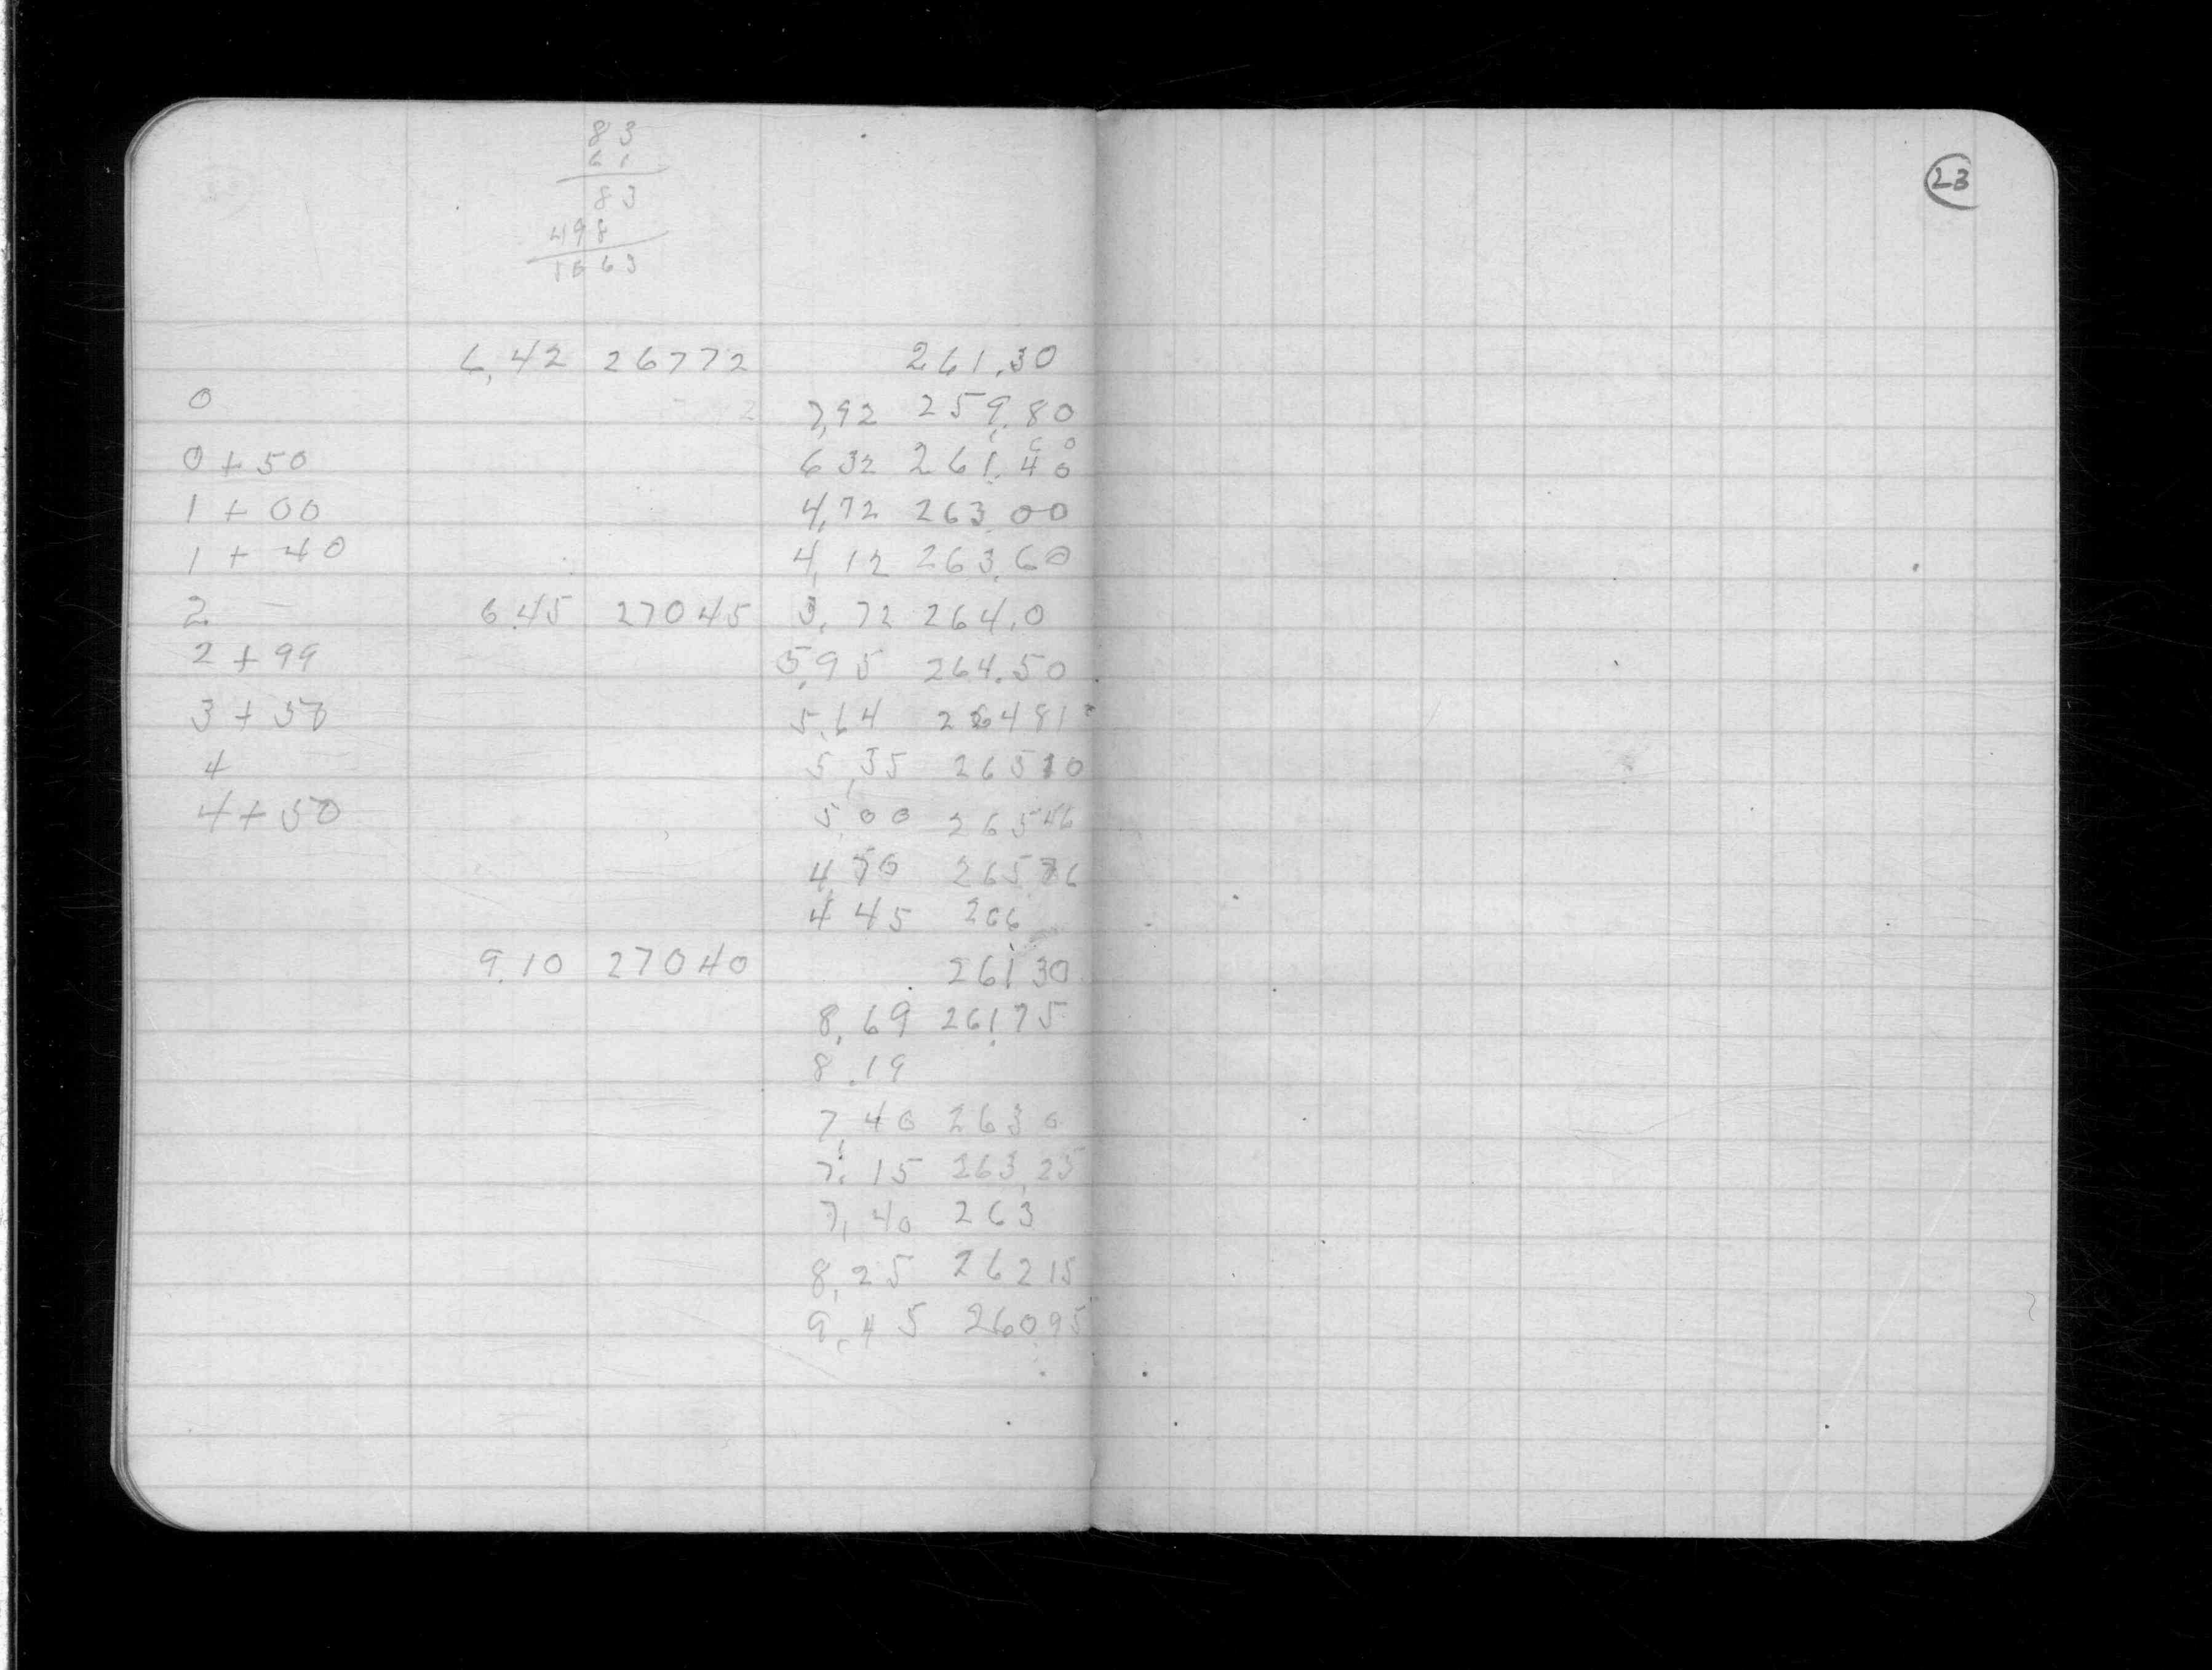 83
61
83
498
1063
23
6,42 26772 261.30
0 7,92 259.80
60
0+50 632 261.40
1+00 4,72 263 00
1+40 4,12 263.60
2 6.45 27045 3.72 264.0
2+99 5.95 264.50
3+50 5.64 26481
4 5,35 26510
4+50 5,00 26546
4,70 26576
4 45 266
9.10 27040 26130
8.69 261.75
8.19
7,40 2630
7.15 263,25
7,40 263
8,25 26215
9.45 26095